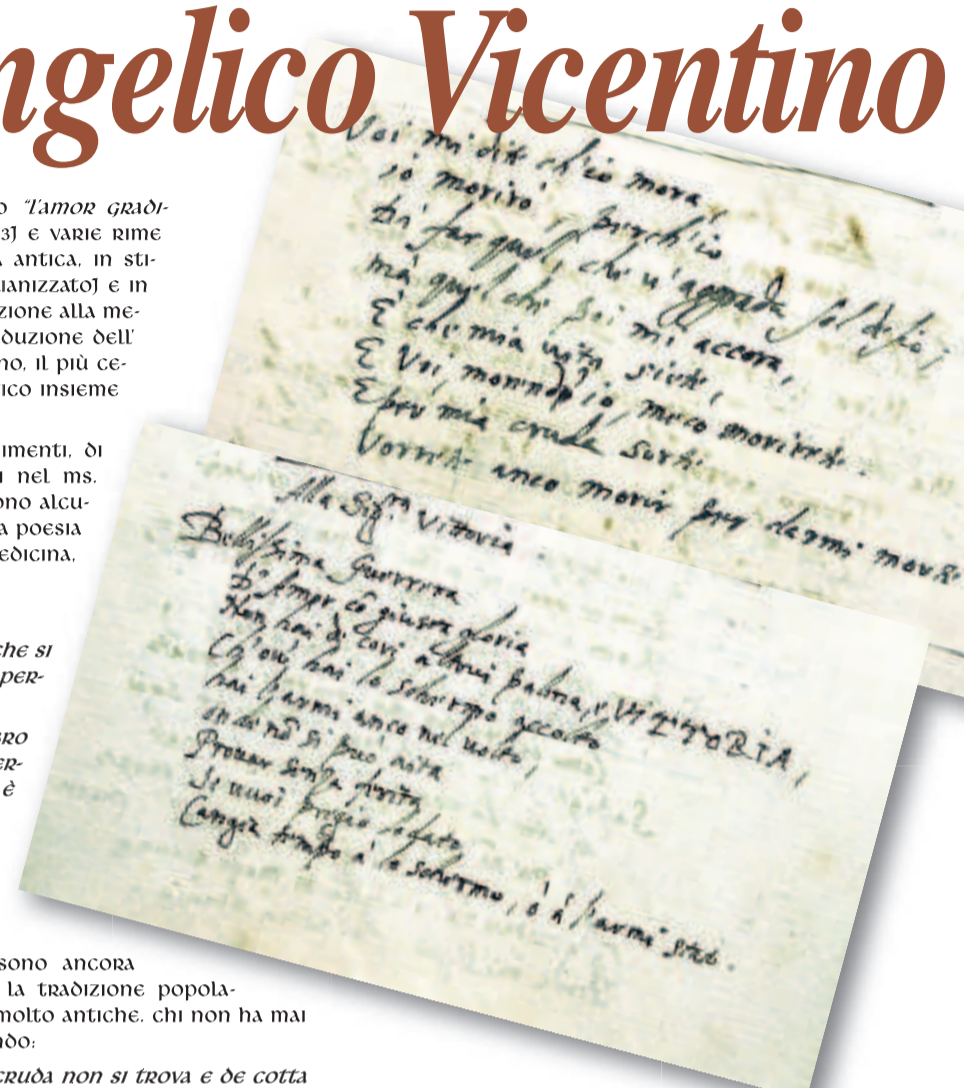 ngelico Vicentino
o "l'amor gradi-
3] e varie rime
a antica, in sti-
ianizzato] e in
zione alla me-
duzione dell'
no, il più ce-
ico insieme
imenti, di
i nel ms.
ono alcu-
a poesia
edicina,
che si
per-
ero
er-
è
sono ancora
la tradizione popola-
molto antiche. chi non ha mai
ndo:
cruda non si trova e de cotta
Voi mi dite ch'io mora,
io morirò, perch'io
Di far quel, che v'aggrada sol desio;
mà quel che poi mi accora,
È che mia vita siete,
E Voi, morendo io, meco morirete.
E per mia cruda sorte
Vorrete anco morir per darmi morte
Alla Sigra Vittoria.
Bellissima Guerrera
D. sempre cō giusta gloria
Non hai di cori altrui palma, e VITTORIA,
Ch'ovi hai lo schermo accolto
hai l'armi anco nel volto,
onde nō si può
Provar senza ferita
Se vuoi
Cangia tempo a lo schermo, ò à l'armi